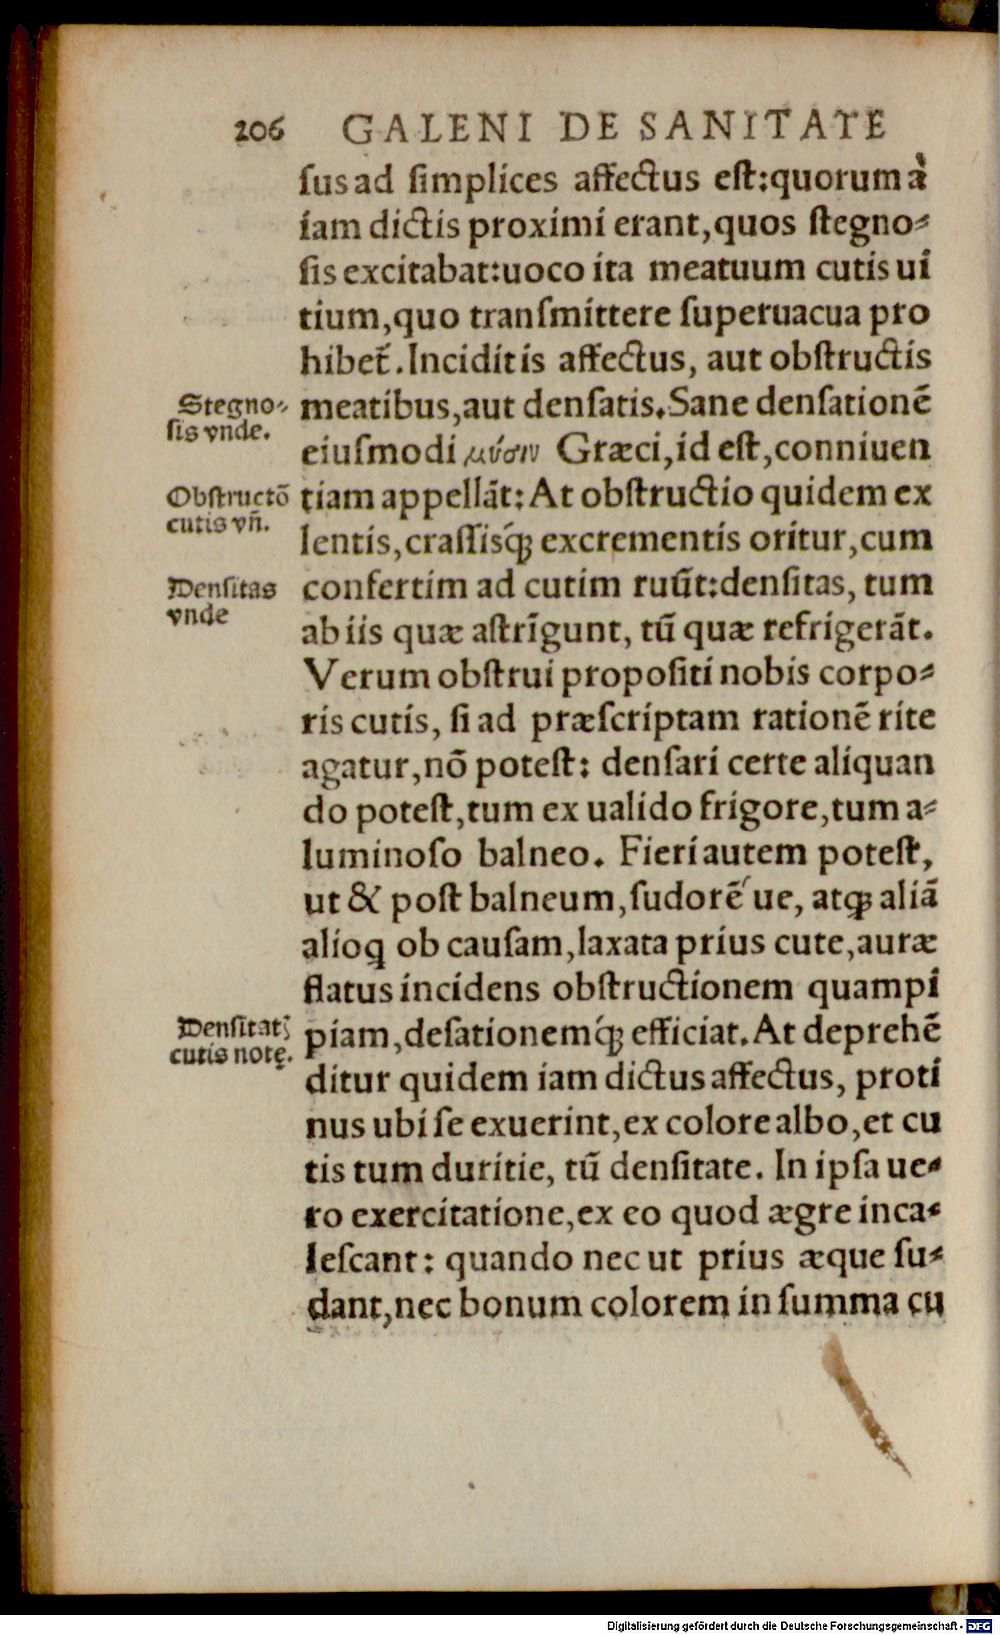 206 GALENI DE SANITATE
ſus ad ſimplices affectus eſt:quorum à
iam dictis proximi erant,quos ſtegno⸗
ſis excitabat:uoco ita meatuum cutis ui
tium,quo tranſmittere ſuperuacua pro
hibet̃.Incidit is affectus, aut obſtructis
Stegno⸗
ſis vnde.
meatibus,aut denſatis.Sane denſationẽ
eiuſmodi μύσιν Græci,id eſt,conniuen
Obſtructõ
cutis vñ.
tiam appellãt: At obſtructio quidem ex
lentis,craſſisq́ꝫ excrementis oritur,cum
Denſitas
vnde
confertim ad cutim ruũt:denſitas, tum
ab iis quæ aſtrĩgunt, tũ quæ refrigerãt.
Verum obſtrui propoſiti nobis corpo⸗
ris cutis, ſi ad præſcriptam rationẽ rite
agatur,nõ poteſt: denſari certe aliquan
do poteſt,tum ex ualido frigore,tum a⸗
luminoſo balneo. Fieri autem poteſt,
ut & poſt balneum,ſudorẽ ue, atqꝫ aliã
alioq ob cauſam,laxata prius cute,auræ
flatus incidens obſtructionem quampi
Denſitatꝭ
cutis notę.
piam,deſationemq́ꝫ efficiat.At deprehẽ
ditur quidem iam dictus affectus, proti
nus ubi ſe exuerint,ex colore albo,et cu
tis tum duritie, tũ denſitate. In ipſa ue⸗
ro exercitatione,ex eo quod ægre inca⸗
leſcant: quando nec ut prius æque ſu⸗
dant,nec bonum colorem in ſumma cu
Digitalisierung gefördert durch die Deutsche Forschungsgemeinschaft - DFG